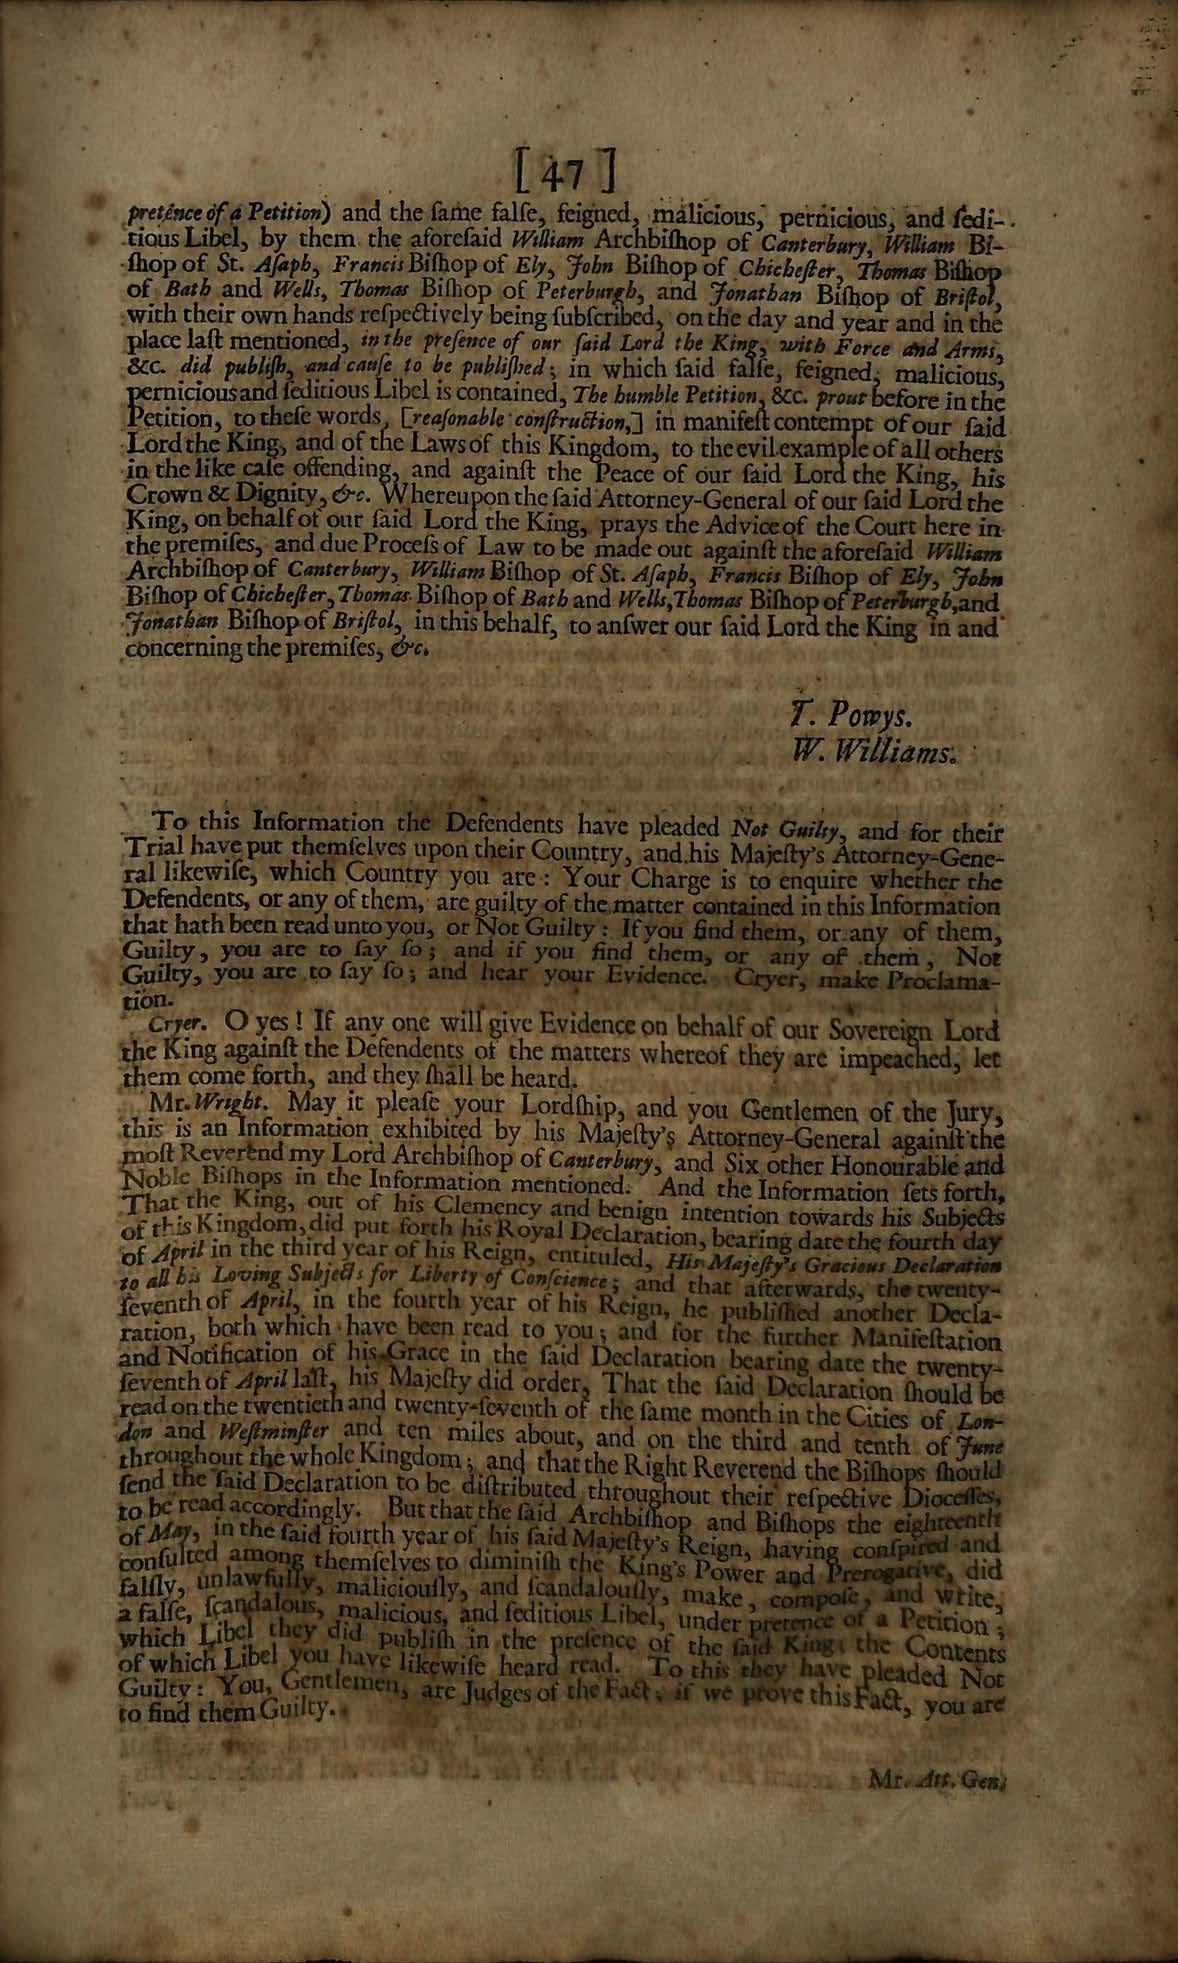 [ 47 ]
pretence of a Petition) and the ſame falſe, feigned, malicious, pernicious, and ſedi-
tious Libel, by them the aforeſaid William Archbiſhop of Canterbury, William Bi-
ſhop of St. Aſaph, Francis Biſhop of Ely, John Biſhop of Chicheſter, Thomas Biſhop
of Bath and Wells, Thomas Biſhop of Peterburgh, and Jonathan Biſhop of Briſtol,
with their own hands reſpectively being ſubſcribed, on the day and year and in the
place laſt mentioned, in the preſence of our ſaid Lord the King, with Force and Arms,
&c. did publiſh, and cauſe to be publiſhed; in which ſaid falſe, feigned, malicious,
pernicious and ſeditious Libel is contained, The humble Petition, &c. prout before in the
Petition, to theſe words, [reaſonable conſtruction,] in manifeſt contempt of our ſaid
Lord the King, and of the Laws of this Kingdom, to the evil example of all others
in the like caſe offending, and againſt the Peace of our ſaid Lord the King, his
Crown & Dignity, &c. Whereupon the ſaid Attorney-General of our ſaid Lord the
King, on behalf of our ſaid Lord the King, prays the Advice of the Court here in
the premiſes, and due Proceſs of Law to be made out againſt the aforeſaid William
Archbiſhop of Canterbury, William Biſhop of St. Aſaph, Francis Biſhop of Ely, John
Biſhop of Chicheſter, Thomas Biſhop of Bath and Wells, Thomas Biſhop of Peterburgh, and
Jonathan Biſhop of Briſtol, in this behalf, to anſwer our ſaid Lord the King in and
concerning the premiſes, &c.
T. Powys.
W. Williams.
To this Information the Defendents have pleaded Not Guilty, and for their
Trial have put themſelves upon their Country, and his Majeſty's Attorney-Gene-
ral likewiſe, which Country you are: Your Charge is to enquire whether the
Defendents, or any of them, are guilty of the matter contained in this Information
that hath been read unto you, or Not Guilty: If you find them, or any of them,
Guilty, you are to ſay ſo; and if you find them, or any of them, Not
Guilty, you are to ſay ſo; and hear your Evidence. Cryer, make Proclama-
tion.
Cryer. O yes! If any one will give Evidence on behalf of our Sovereign Lord
the King againſt the Defendents of the matters whereof they are impeached, let
them come forth, and they ſhall be heard.
Mr. Wright. May it pleaſe your Lordſhip, and you Gentlemen of the Jury,
this is an Information exhibited by his Majeſty's Attorney-General againſt the
moſt Reverend my Lord Archbiſhop of Canterbury, and Six other Honourable and
Noble Biſhops in the Information mentioned. And the Information ſets forth,
That the King, out of his Clemency and benign intention towards his Subjects
of this Kingdom, did put forth his Royal Declaration, bearing date the fourth day
of April in the third year of his Reign, entituled, His Majeſty's Gracious Declaration
to all his Loving Subjects for Liberty of Conſcience; and that afterwards, the twenty-
ſeventh of April, in the fourth year of his Reign, he publiſhed another Decla-
ration, both which have been read to you; and for the further Manifeſtation
and Notification of his Grace in the ſaid Declaration bearing date the twenty-
ſeventh of April laſt, his Majeſty did order, That the ſaid Declaration ſhould be
read on the twentieth and twenty-ſeventh of the ſame month in the Cities of Lon-
don and Weſtminſter and ten miles about, and on the third and tenth of June
throughout the whole Kingdom; and that the Right Reverend the Biſhops ſhould
ſend the ſaid Declaration to be diſtributed throughout their reſpective Dioceſſes,
to be read accordingly. But that the ſaid Archbiſhop and Biſhops the eighteenth
of May, in the ſaid fourth year of his ſaid Majeſty's Reign, having conſpired and
conſulted among themſelves to diminiſh the King's Power and Prerogative, did
falſly, unlawfully, maliciouſly, and ſcandalouſly, make, compoſe, and write,
a falſe, ſcandalous, malicious, and ſeditious Libel, under pretence of a Petition;
which Libel they did publiſh in the preſence of the ſaid King; the Contents
of which Libel you have likewiſe heard read. To this they have pleaded Not
Guilty: You, Gentlemen, are Judges of the Fact; if we prove this Fact, you are
to find them Guilty.
Mr. Att. Gen.